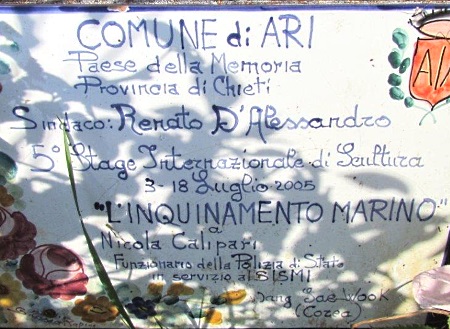 COMUNE di ARI
Paese della Memoria
Provincia di Chieti
Sindaco: Renato D'Alessandro
5° Stage Internazionale di Scultura
3-18 Luglio 2005
"L'INQUINAMENTO MARINO"
a
Nicola Calipari
Funzionario della Polizia di Stato
in servizio al S.I.S.M.I.
Jang Sae Wook
(Corea)